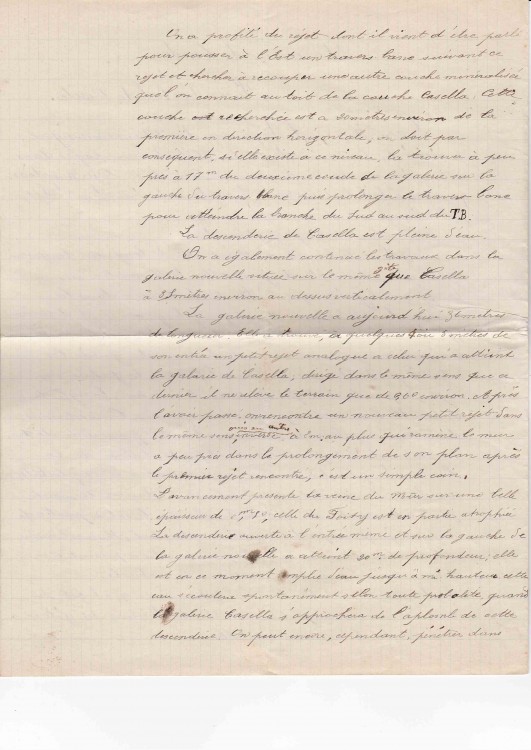 On a profité de rejet dont il vient d'être parlé
pour pousser à l'Est un travers banc suivant ce
rejet et chercher à recouper une autre couche minéralisée
que l'on connait au toit de la couche Casella. Cette
couche est recherchée est a metres environ de la
première en direction horizontale, on doit par
consequent, si elle existe a ce niveau, la trouver à peu
près à 17m du deuxieme coude de la galerie sur la
gauche du travers banc puis prolonger le travers banc
pour atteindre la branche du Sud au sud du T.B.
La descenderie de Casella est pleine d'eau.
On a également continué les travaux dans la
galerie nouvelle située sur le même gite que Casella
à 25 mètres environ au dessus verticalement
La galerie nouvelle a aujourd'hui metres
de longueur. Elle a trouvé, à quelques metres de
son entrée un petit rejet analogue a celui qui a atteint
la galerie de Casella, dirigé dans le même sens que ce
dernier il ne élève le terrain que de environ. Après
l'avoir passé, on rencontre un nouveau petit rejet dans
le même sens, à 1m, au plus, qui ramène le mur
a peu près dans le prolongement de son plan après
le premier rejet rencontré, c'est un simple coin.
L'avancement présente la veine du Mur sur une belle
épaisseur de celle du Toit y est en partie atrophiée
La descenderie ouverte à l'entrée même et sur la gauche de
la galerie nouvelle a atteint 20m de profondeur; elle
est en ce moment emplie d'eau jusqu'à mi hauteur cette
eau s'écoulera spontanément selon toute probabilité quand
la galerie Casella s'approchera de l'aplomb de cette
descenderie. On peut encore, cependant, pénétrer dans